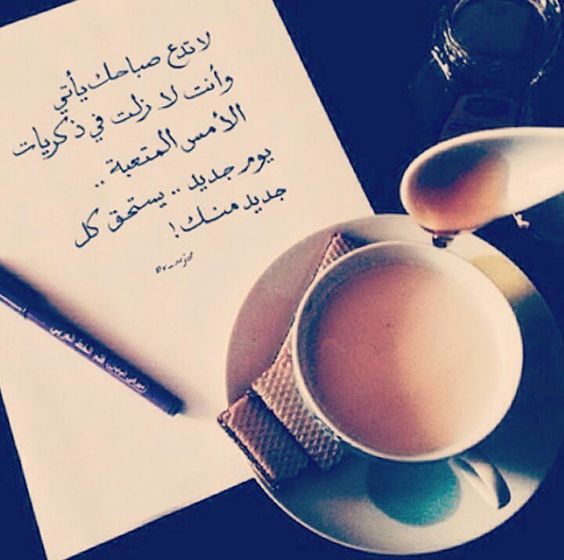 لا تدع صباحك يأتي
وأنت لا زلت في ذكريات
الأمس المتعبة ..
يوم جديد .. يستحق كل
جديد منك!